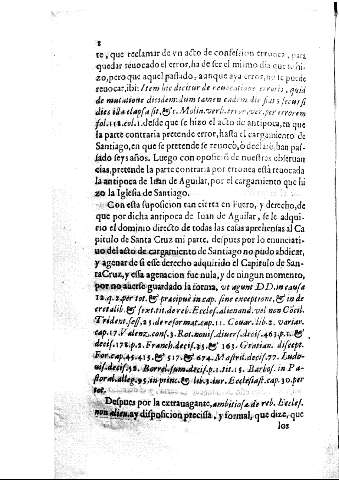 8
te, que reclamar de vn acto de confession erronea, para
quedar reuocado el error, ha de ser el mismo dia que se hi-
zo, pero que aquel passado, aunque aya error, no se puede
reuocar, ibi: Item hæc dicitur de reuocatione erroris, quid
de mutatione diei dem dum tamen eadem die fiat, secus si
dies illa elapsa sit, & Molin. verb. error ver. per errorem
fol. 112. col. 1. desde que se hizo el acto de antipoca, en que
la parte contraria pretende error, hasta el cargamiento de
Santiago, en que se pretende se reuocò, ò declarò, han pas-
sado seys años. Luego con oposiciõ de nuestras obseruan
cias, pretende la parte contraria por erronea està reuocada
la antipoca de Iuan de Aguilar, por el cargamiento que hi
zo la Iglesia de Santiago.
Con esta suposicion tan cierta en Fuero, y derecho, de
que por dicha antipoca de Iuan de Aguilar, se le adqui-
rio el dominio directo de todas las casas aprehensas al Ca
pitulo de Santa Cruz mi parte, despues por lo enunciati-
uo del acto de cargamiento de Santiago no pudo abdicar,
y agenar de si esse derecho adquirido el Capitulo de San-
ta Cruz, y essa agenacion fue nula, y de ningun momento,
por no auerse guardado la forma, vt agunt DD. in causa
12. q. 2. per tot. & præcipuè in cap. sine exceptione, & in de
cretalib. & sext. tit. de reb. Eccles. alienand. vel non Cõcil.
Trident. sess. 25. de reformat. cap. 11. Couar. lib. 2. varian.
cap. 17. Valenz. cons. 3. Rot. nouis. diuers. decis. 463. p. 1. &
decis. 172. p. 2. Franch. decis. 25. & 163. Gratian. discept.
For. cap. 45. 415. & 517. & 674. Mastril. decis. 77. Ludo-
uis. decis. 52. Borrel. sum. decis. p. 1. tit. 15. Barbos. in Pa-
storal. alleg. 95. in princ. & lib. 3. iur. Ecclesiast. cap. 30. per
tot.
Despues por la extrauagante, ambitiosæ de reb. Eccles.
non alien. ay disposicion precissa, y formal, que dize, que
los